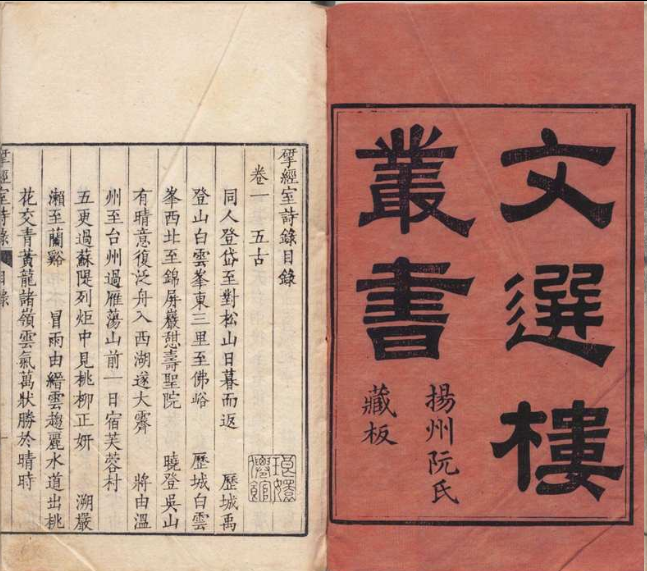 文選樓
叢書
揚州阮氏
藏板
揅經室詩錄目錄
卷一 五古
同人登岱至對松山日暮而返 歷城禹
登山白雲峯東三里至佛峪 歷城白雲
峯西北至錦屏巖憇壽聖院 曉登吳山
有晴意復泛舟入西湖遂大霽 將由溫
州至台州過雁蕩山前一日宿芙蓉村
五更過蘇隄列炬中見桃柳正妍 溯嚴
瀨至蘭谿 冒雨由縉雲趨麗水道出桃
花交青黃龍諸嶺雲氣萬狀勝於晴時
揅經室詩錄 目錄
琅嬛
僊館